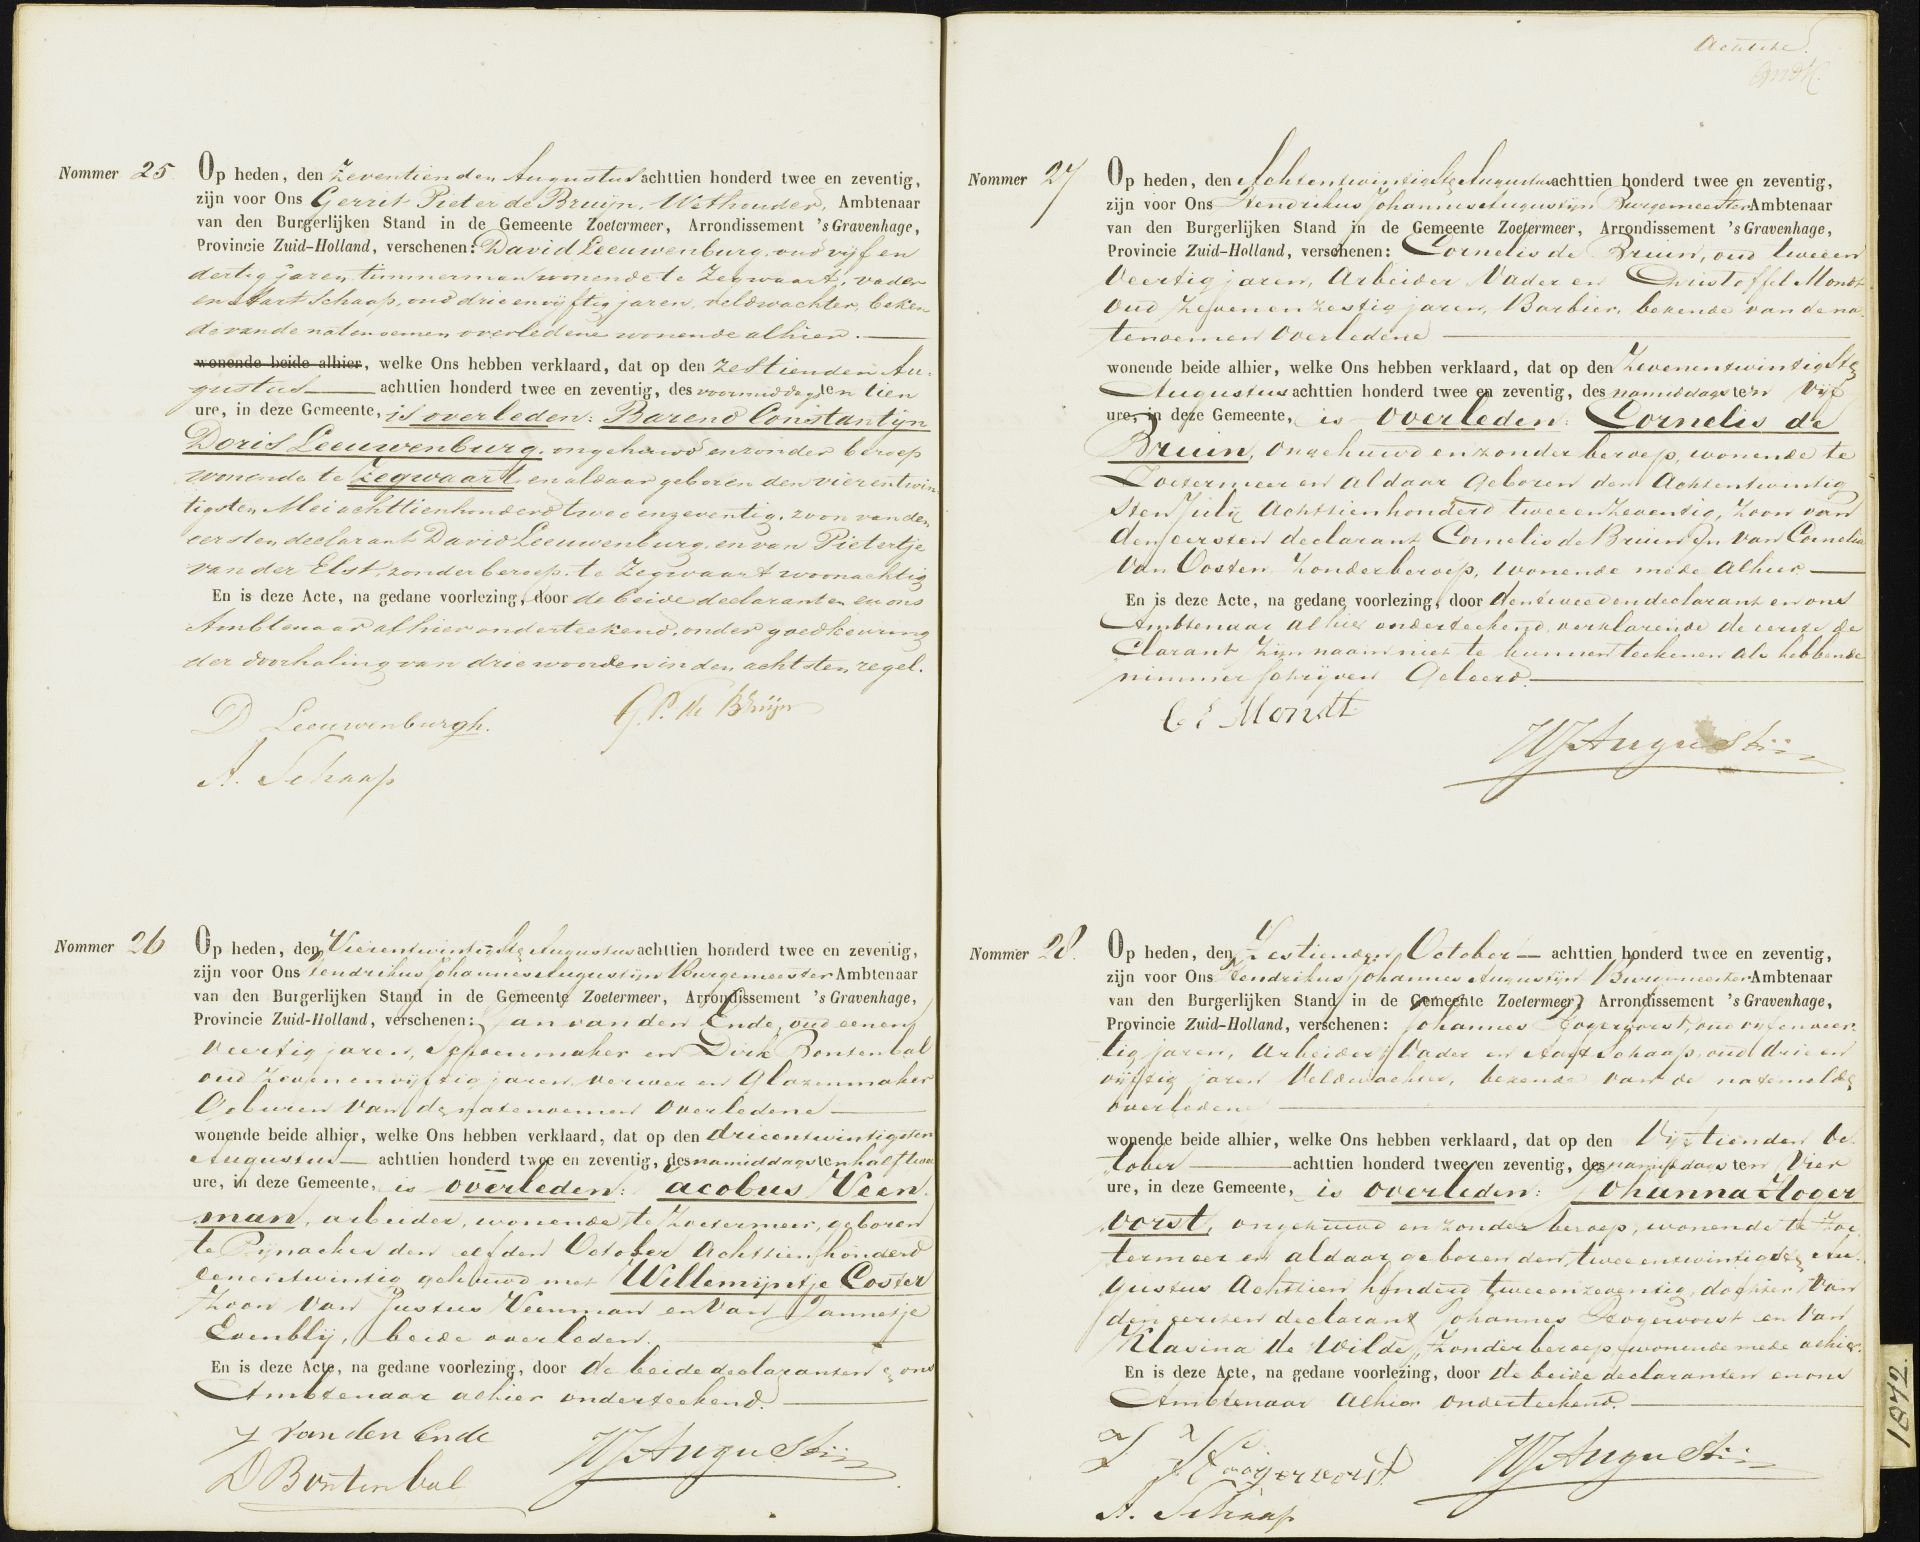 Nommer 25
Op heden, den Zeventienden Augustus achttien honderd twee en zeventig,
zijn voor Ons Gerrit Pieter de Bruijn, Wethouder, Ambtenaar
van den Burgerlijken Stand in de Gemeente Zoetermeer, Arrondissement 's Gravenhage,
Provincie Zuid-Holland, verschenen: David Leeuwenburg, oud vijf en
dertig jaren, timmerman wonende te Zegwaart, vader
en Aart Schaap, oud drie en vijftig jaren, veldwachter, beken
de van de natenoemen overledene wonende alhier.
wonende beide alhier, welke Ons hebben verklaard, dat op den zestienden Au-
gustus achttien honderd twee en zeventig, des voormiddags ten tien
ure, in deze Gemeente, is overleden: Barend Constantijn
Doris Leeuwenburg, ongehuwd en zonder beroep
wonende te Zegwaart en aldaar geboren den vierentwin
tigsten Mei achttienhonderd twee en zeventig, zoon van den
eersten declarant David Leeuwenburg, en van Pietertje
van der Elst, zonder beroep, te Zegwaart woonachtig
En is deze Acte, na gedane voorlezing, door de beide declaranten en ons
Ambtenaar alhier onderteekend, onder goedkeuring
der doorhaling van drie woorden in den achtsten regel.
D Leeuwenburgh.
G. P. de Bruijn
A. Schaap
Nommer 26
Op heden, den Vierentwintigste Augustus achttien honderd twee en zeventig,
zijn voor Ons Hendrikus Johannes Augustijn Burgemeester Ambtenaar
van den Burgerlijken Stand in de Gemeente Zoetermeer, Arrondissement 's Gravenhage,
Provincie Zuid-Holland, verschenen: Jan van den Ende, oud eenen
veertig jaren, Schoenmaker en Dirk Bontenbal
oud zevenenvijftig jaren, verwer en Glazenmaker
Geburen van de natenoemen overledene
wonende beide alhier, welke Ons hebben verklaard, dat op den drieentwintigsten
Augustus achttien honderd twee en zeventig, des namiddags ten half twee
ure, in deze Gemeente, is overleden: Jacobus Veen
man, arbeider, wonende te Zoetermeer, geboren
te Pijnacker den elfden October Achttienhonderd
eenentwintig gehuwd met Willemijntje Coster
Zoon van Justus Veenman en van Jannetje
Evenblij, beide overleden.
En is deze Acte, na gedane voorlezing, door de beide declaranten en ons
Ambtenaar alhier onderteekend.
J van den Ende
HJ Augustijn
D Bontenbal
Nommer 27
Op heden, den Achtentwintigste Augustus achttien honderd twee en zeventig,
zijn voor Ons Hendrikus Johannes Augustijn Burgemeester Ambtenaar
van den Burgerlijken Stand in de Gemeente Zoetermeer, Arrondissement 's Gravenhage,
Provincie Zuid-Holland, verschenen: Cornelis de Bruin, oud tweeen
veertig jaren, Arbeider Vader en Christoffel Mondt
oud zevenenzestig jaren, Barbier, bekende van de na
tenoemen Overledene
wonende beide alhier, welke Ons hebben verklaard, dat op den Zevenentwintigste
Augustus achttien honderd twee en zeventig, des namiddags ten Vijf
ure, in deze Gemeente, is overleden: Cornelis de
Bruin, Ongehuwd en zonder beroep, wonende te
Zoetermeer en aldaar geboren den Achtentwintig
sten Julij Achttienhonderd tweeenzeventig, Zoon van
den eersten declarant Cornelis de Bruin En van Cornelia
van Oosten, Zonder beroep, wonende mede Alhier
En is deze Acte, na gedane voorlezing, door den tweeden declarant en ons
Ambtenaar alhier onderteekend, verklarende de eerste de
Clarant Zijn naam niet te kunnen teekenen als hebbende
nimmer schrijven Geleerd.
C: Mondt
HJ Augustijn
Nommer 28.
Op heden, den Zestienden October achttien honderd twee en zeventig,
zijn voor Ons Hendrikus Johannes Augustijn Burgemeester Ambtenaar
van den Burgerlijken Stand in de Gemeente Zoetermeer, Arrondissement 's Gravenhage,
Provincie Zuid-Holland, verschenen: Johannes Hogervorst, oud vijfenveer
tig jaren, Arbeider, Vader en Aart Schaap, oud drie en
vijftig jaren Veldwachter, bekende van de natemelde
overledene
wonende beide alhier, welke Ons hebben verklaard, dat op den Vijftienden Oc
tober achttien honderd twee en zeventig, des namiddags ten Vier
ure, in deze Gemeente, is overleden: Johanna Hoger
vorst, ongehuwd en zonder beroep, wonende te Zoe
termeer en aldaar geboren den tweeentwintigste Au
gustus Achttien honderd tweeenzeventig, dochter van
den eersten declarant Johannes Hogervorst en van
Klasina de Wilde, Zonder beroep, wonende mede alhier.
En is deze Acte, na gedane voorlezing, door de beide declaranten en ons
Ambtenaar Alhier onderteekend.
J Hoogervorst
HJ Augustijn
A. Schaap
1872.